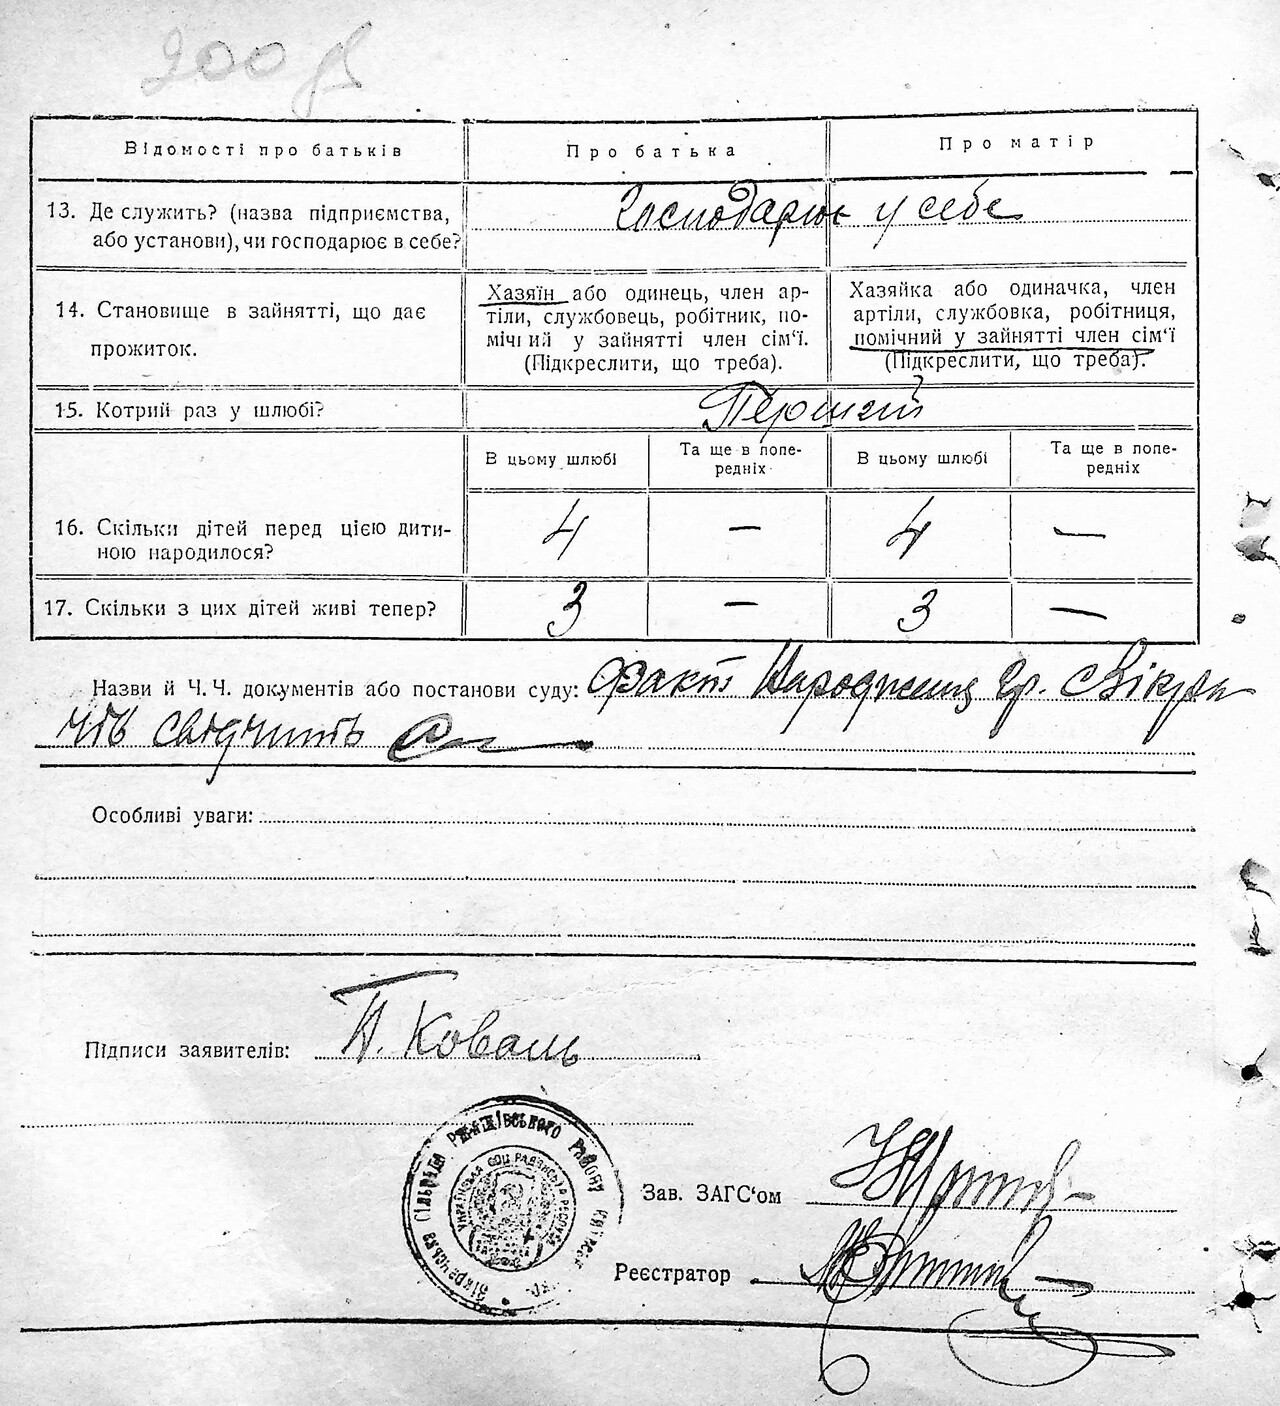 200
Відомості про батьків
Про батька
Про матір
13. Де служить? (назва підприємства, або установи), чи господарює в себе?
Господарює у себе
14. Становище в зайнятті, що дає прожиток.
Хазяїн або одинець, член артіли, службовець, робітник, помічний у зайнятті член сім'ї. (Підкреслити, що треба).
Хазяйка або одиначка, член артіли, службовка, робітниця, помічний у зайнятті член сім'ї (Підкреслити, що треба).
15. Котрий раз у шлюбі?
Перший
В цьому шлюбі
Та ще в попередніх
В цьому шлюбі
Та ще в попередніх
16. Скільки дітей перед цією дитиною народилося?
4 — 4 —
17. Скільки з цих дітей живі тепер?
3 — 3 —
Назви й Ч. Ч. документів або постанови суду: Факт народження гр.
свідчить
Особливі уваги:
Підписи заявителів: П. Коваль
сільрада Ржищівського району
Українська Соц. Радянська Республ
Зав. ЗАГС'ом
Реєстратор